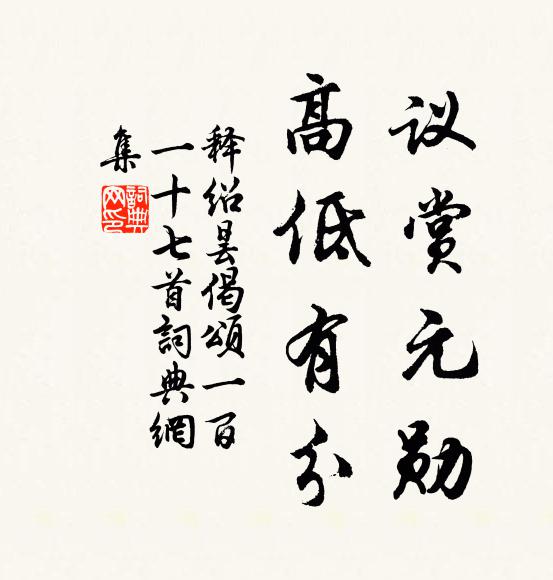 议赏元勋
高低有分
释绍昙偈颂一百
一十七首詞典網
集
詞典
网印